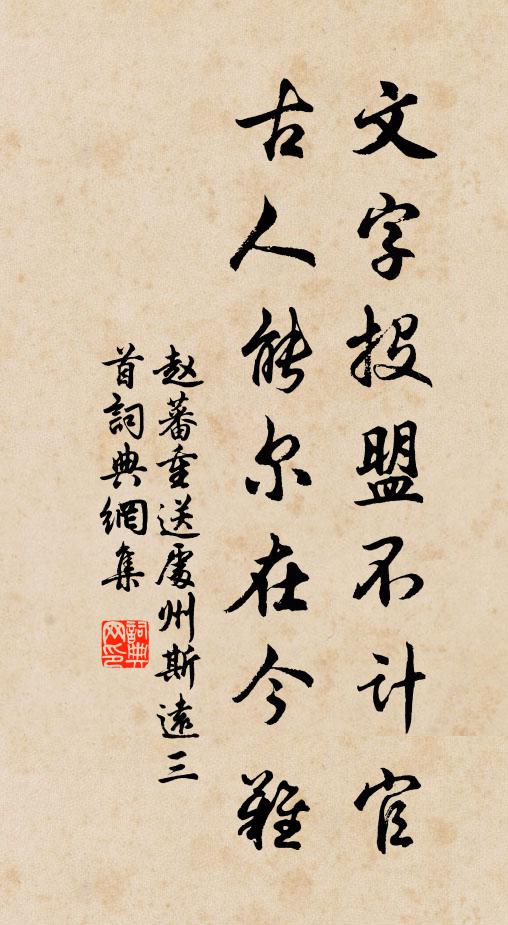 文字投盟不计官
古人能尔在今难
赵蕃重送處州斯遠三
首詞典網集
詞典
网印